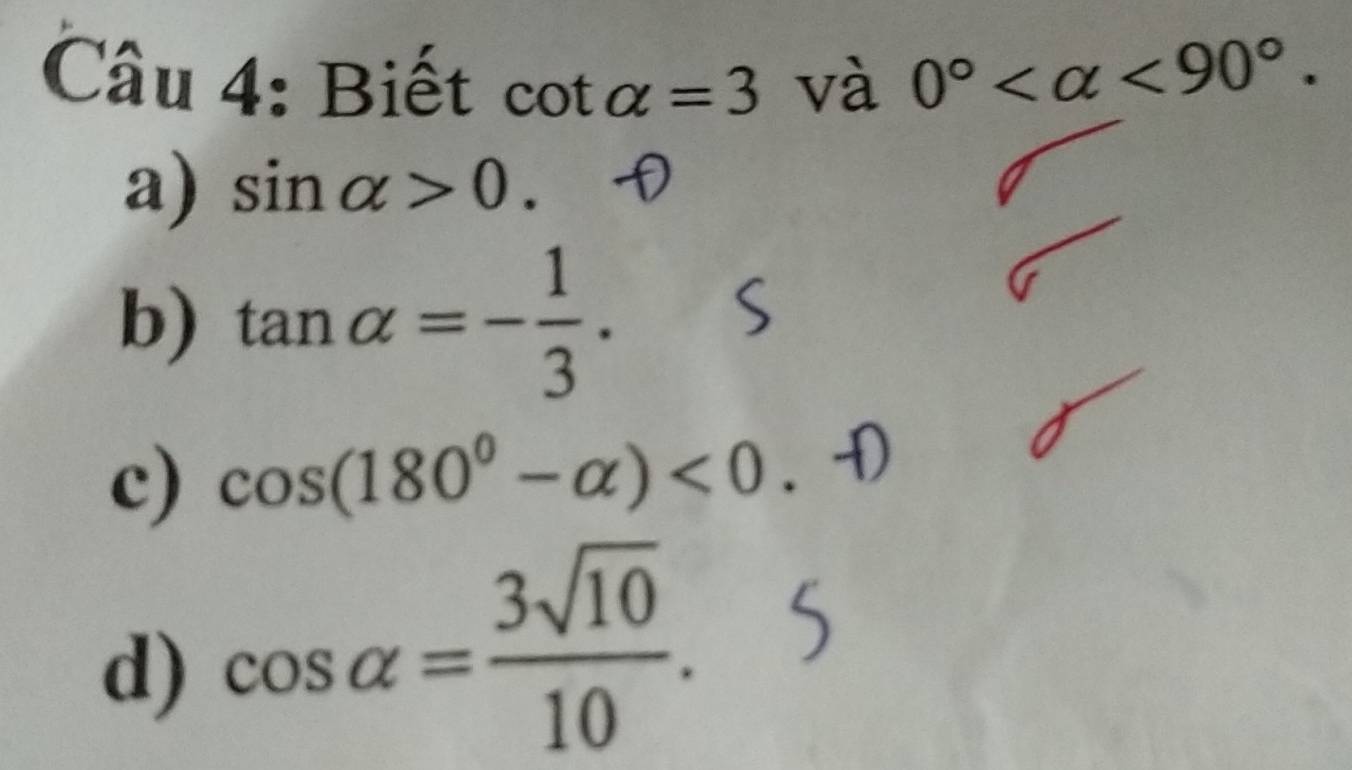 Câu 4: Biết cot α = 3 và 0° < α < 90°.
a) sin α > 0. Đ
b) tan α = -1/3. S
c) cos(180⁰ - α) < 0. Đ
d) cos α = 3√10/10. S